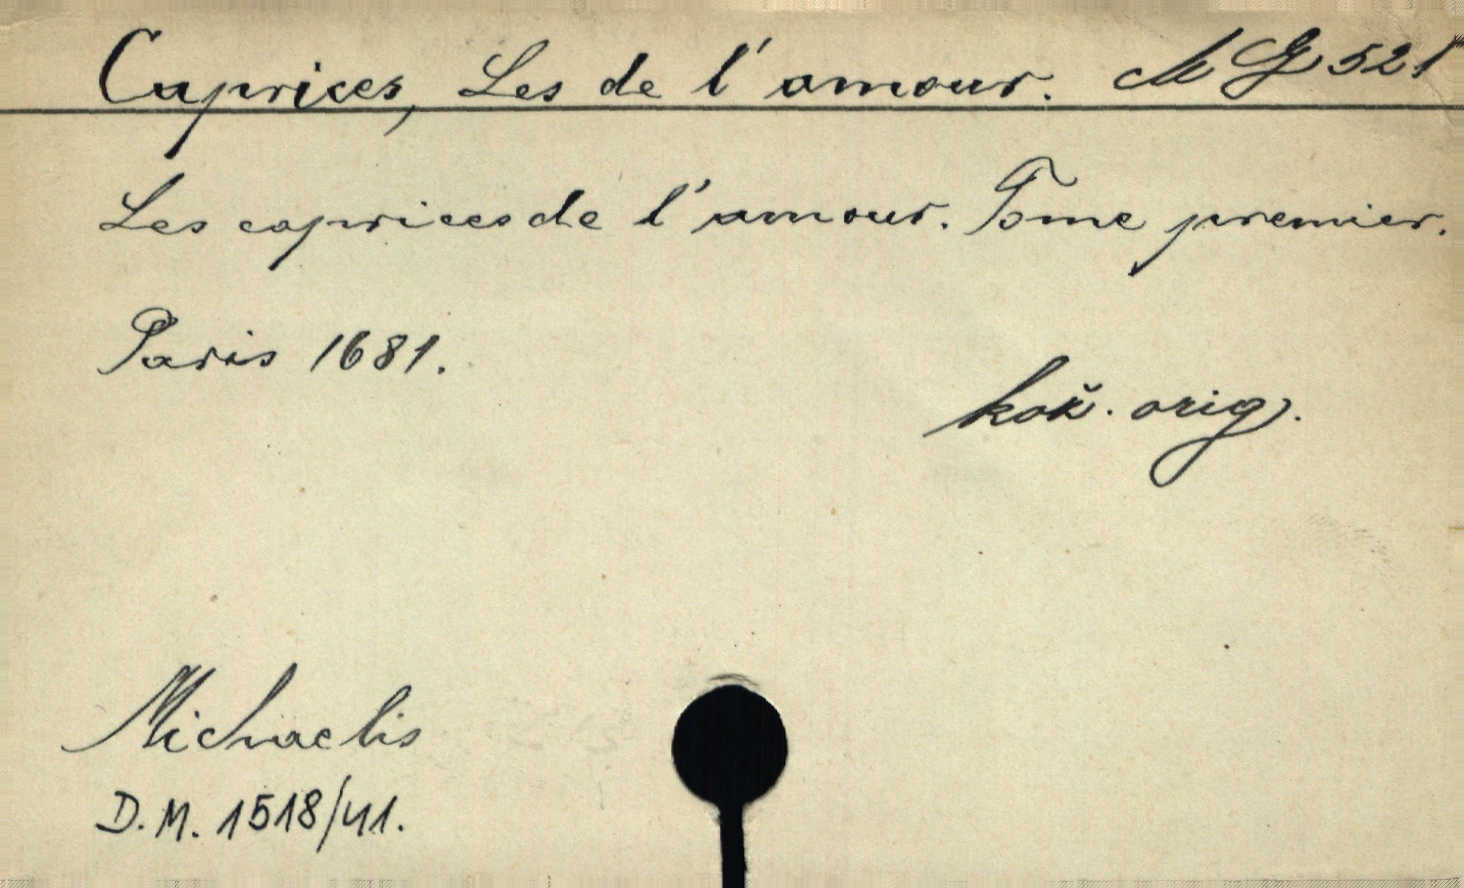 Caprices, Les de l'amour. M G 521
Les caprices de l'amour. Tome premier.
Paris 1681.
kož. orig.
Michaelis
D.M. 1518/41.